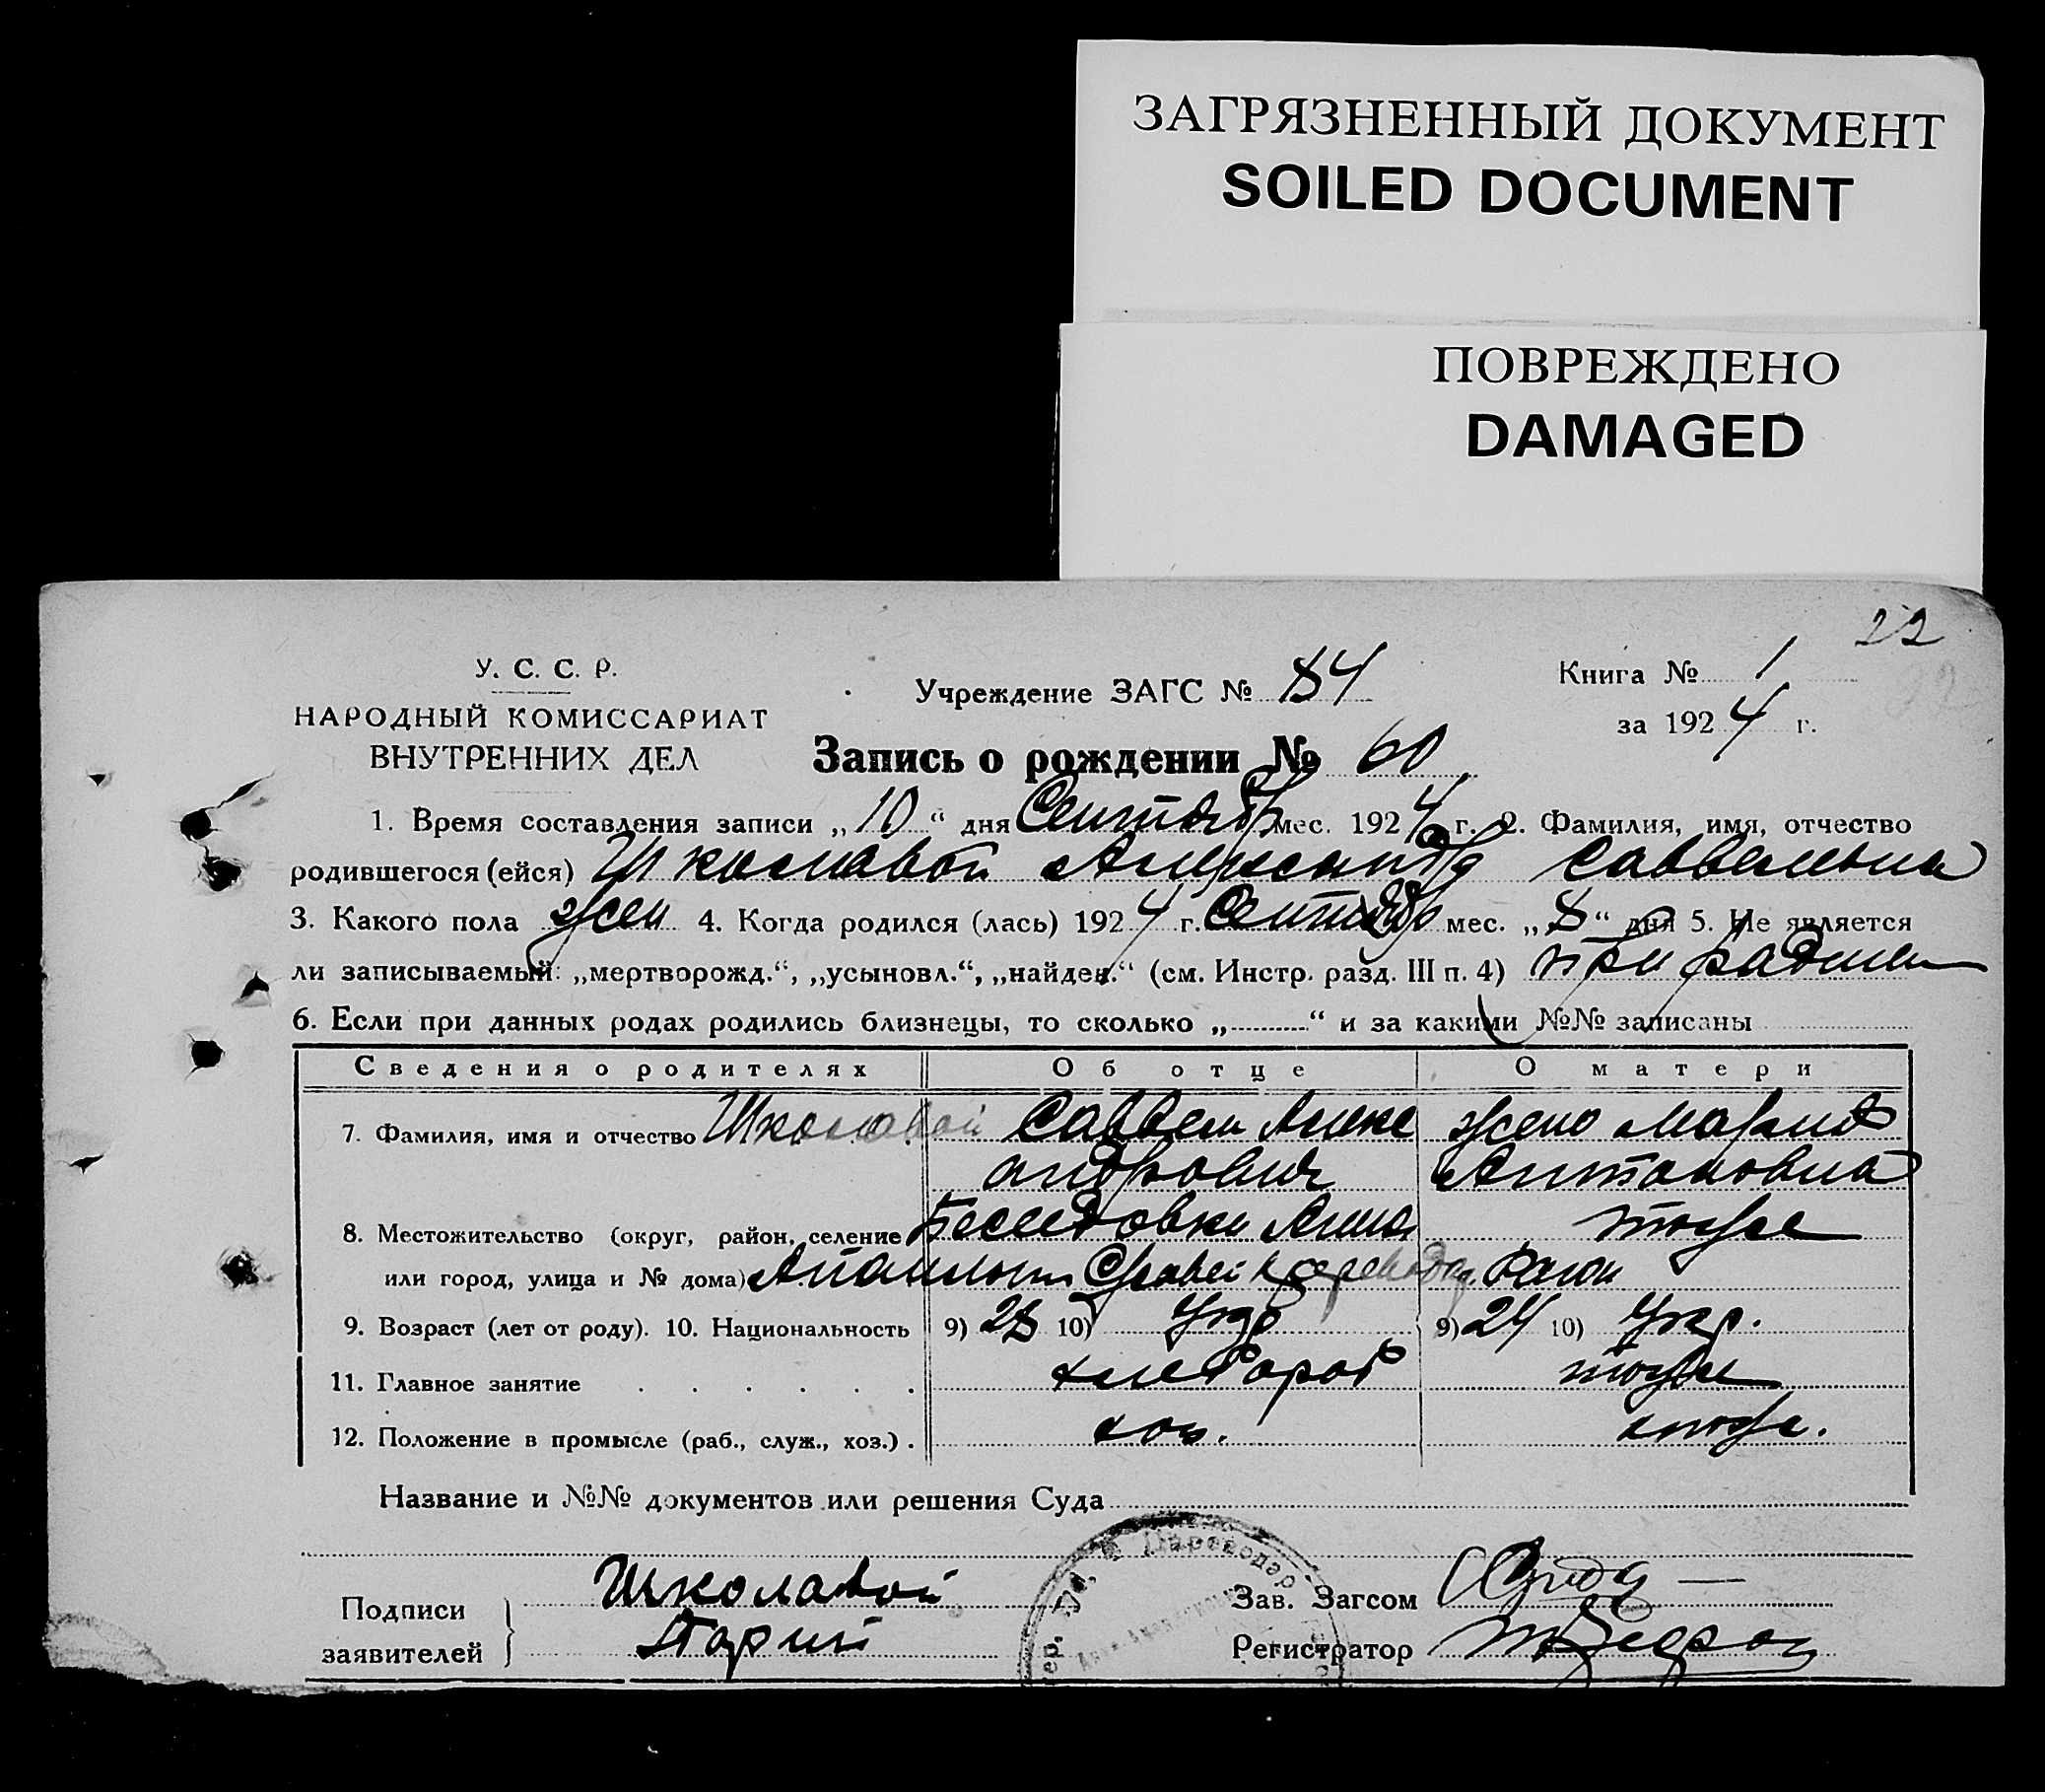 ЗАГРЯЗНЕННЫЙ ДОКУМЕНТ
SOILED DOCUMENT
ПОВРЕЖДЕНО
DAMAGED
22
У. С. С. Р.
НАРОДНЫЙ КОМИССАРИАТ
ВНУТРЕННИХ ДЕЛ
Учреждение ЗАГС № 84
Книга № 1
за 1924 г.
Запись о рождении № 60
1. Время составления записи „10“ дня Сентябр мес. 1924 г. 2. Фамилия, имя, отчество
родившегося (ейся) Школавой Александра Саввельна
3. Какого пола жен 4. Когда родился (лась) 1924 г. Сентябр мес. „8“ дня 5. Не является
ли записываемый: „мертворожд.“, „усыновл.“, „найден.“ (см. Инстр. разд. III п. 4) при
6. Если при данных родах родились близнецы, то сколько „..........“ и за какими №№ записаны
Сведения о родителях Об отце О матери
7. Фамилия, имя и отчество Школовой Саввели Алекс жено Мария
андрович Антоновна
8. Местожительство (округ, район, селение тоже
или город, улица и № дома) Район
9. Возраст (лет от роду). 10. Национальность 9) 28 10) Укр 9) 24 10) Укр.
11. Главное занятие . . . . . . хлебороб тоже
12. Положение в промысле (раб., служ., хоз.) . хоз. тоже.
Название и №№ документов или решения Суда
Подписи заявителей Школавой
Зав. Загсом
Регистратор